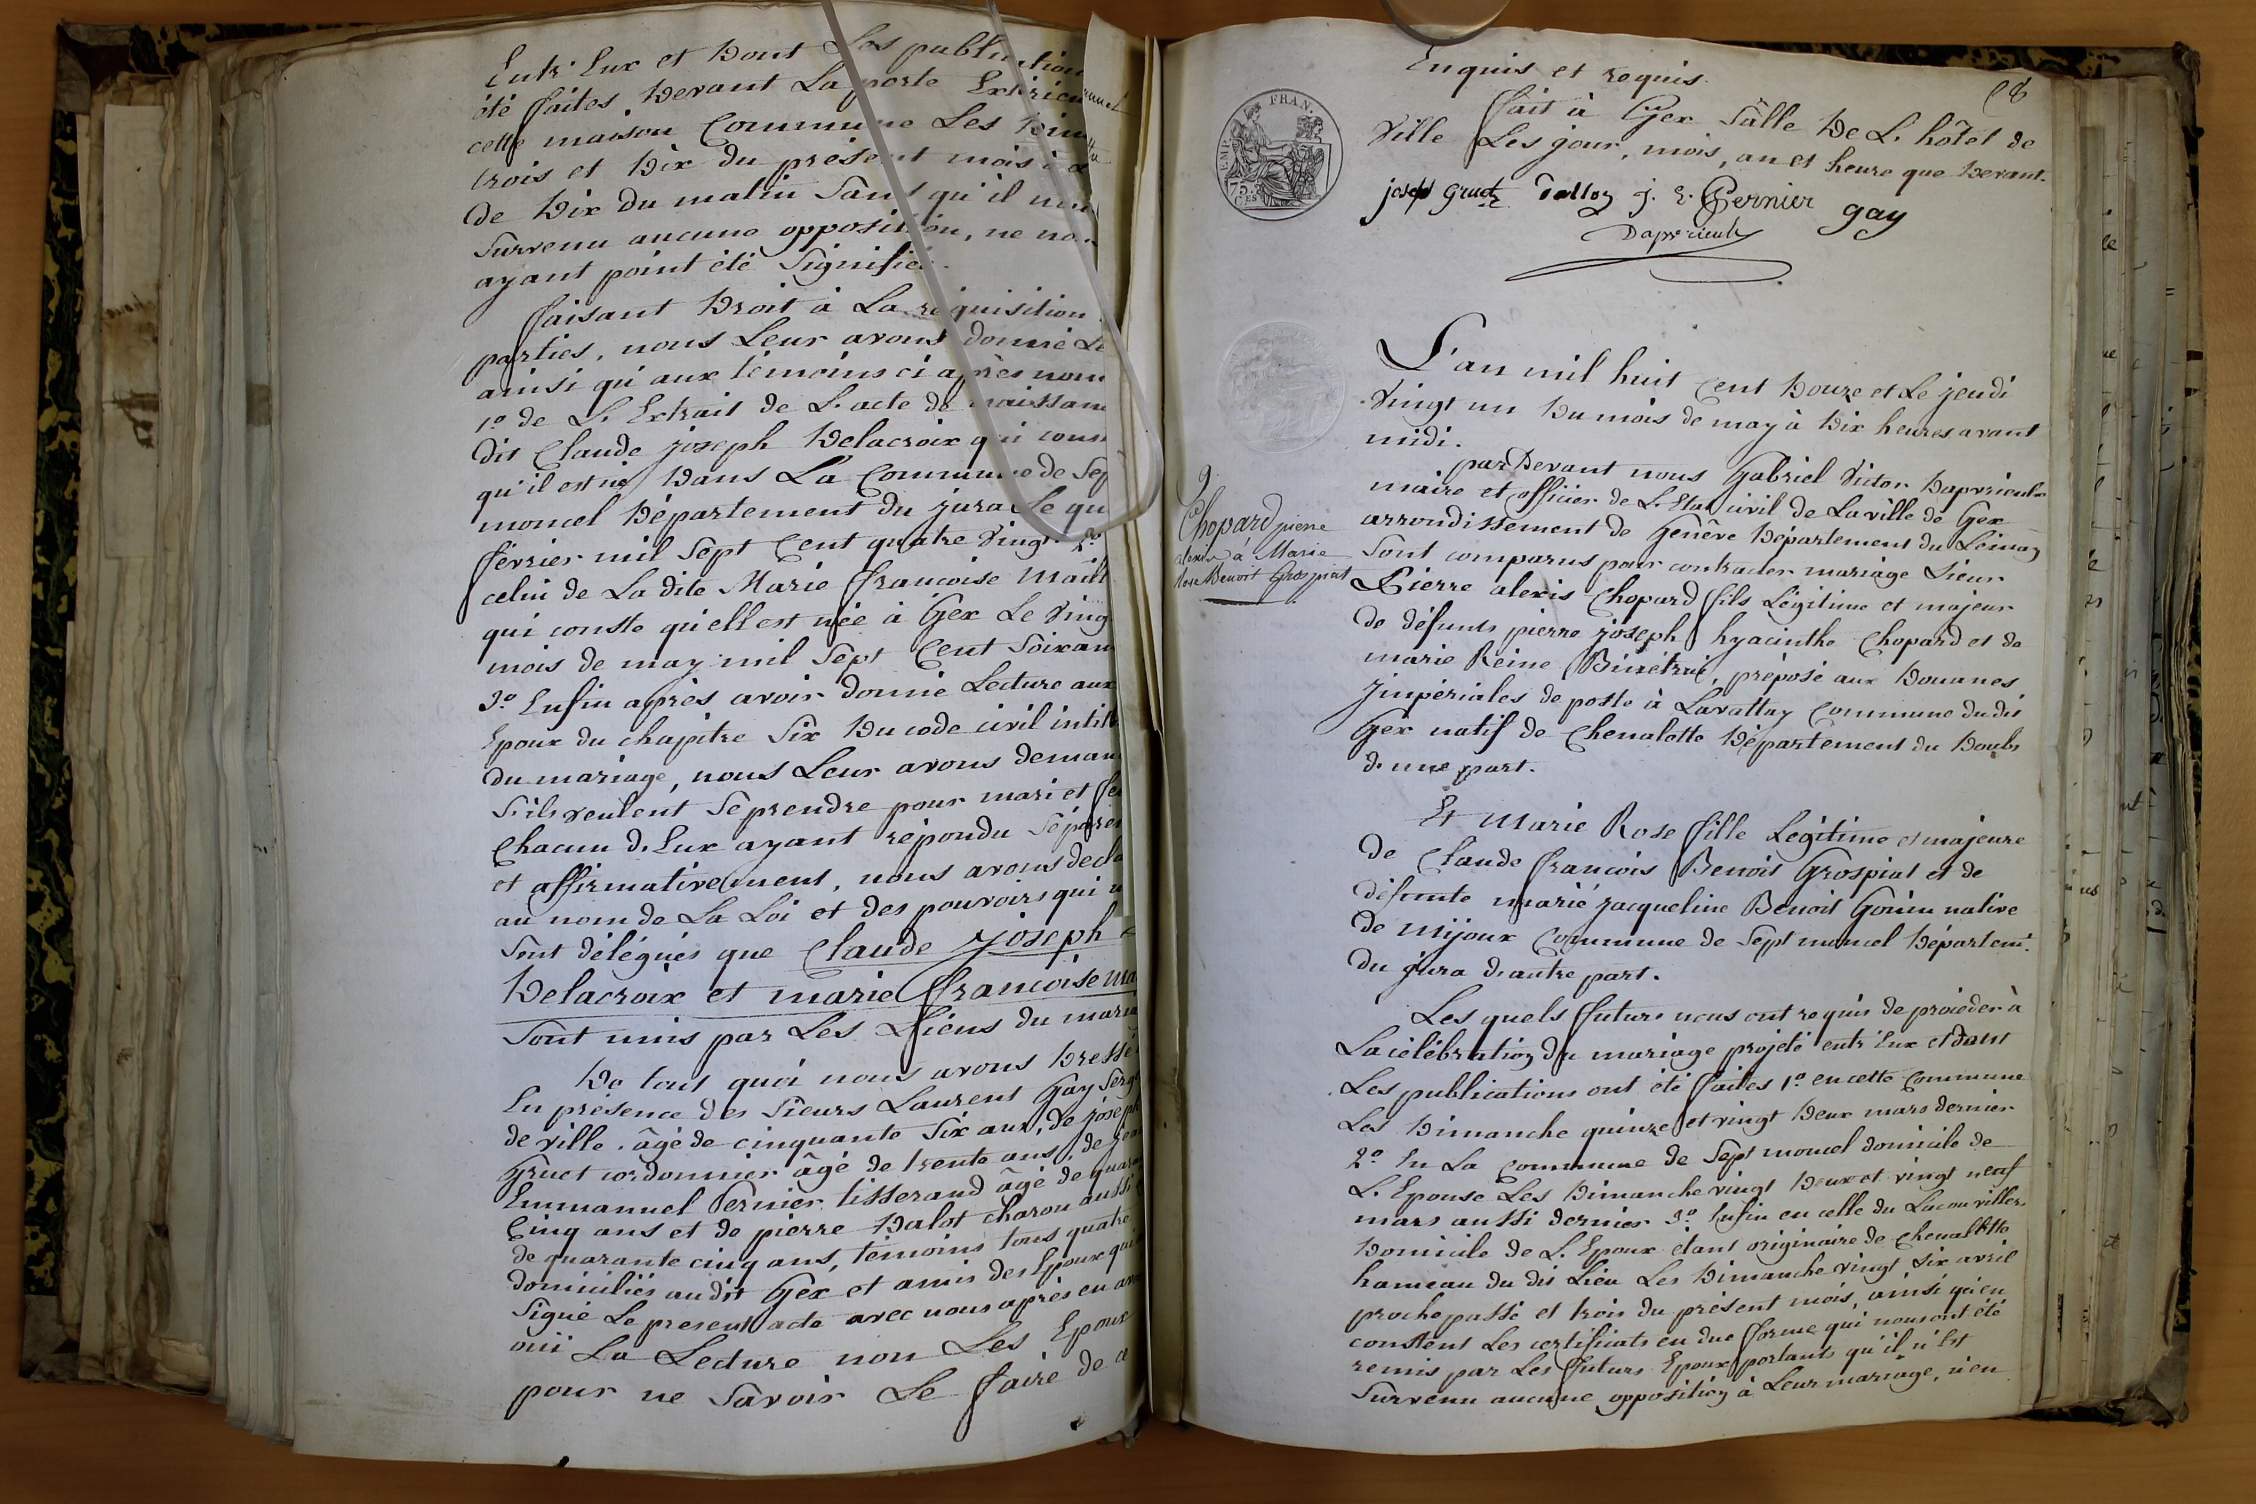 Entr'Eux et Dont Les publication
été faites Devant La porte Extérieu
cette maison Commune Les Dim
trois et Dix du présent mois à
de Dix du matin Sans qu'il nou
Survenu aucune opposition, ne nous
ayant point été Signifiée.
faisant Droit à La réquisition
parties, nous Leur avons donné Le
ainsi qu'aux témoins ci après nom
1.º de L'Extrait de L'acte de naissan
dit Claude joseph Delacroix qui cons
qu'il est né Dans La Commune de Sep
moncel Département du jura Le qu
février mil Sept Cent quatre Vingt 2.º
celui de La dite Marie françoise Maill
qui conste qu'elle est née à Gex Le Ving
mois de may mil Sept Cent Soixan
3.º Enfin après avoir donné Lecture aux
Epoux du chapitre Six Du code civil intit
du mariage, nous Leur avons deman
S'ils veulent Se prendre pour mari et fe
Chacun d'Eux ayant répondu Séparem
et affirmativement, nous avons decla
au nom de La Loi et des pouvoirs qui n
Sont délégués que Claude joseph
Delacroix et marie françoise Ma
Sont unis par Les Liens du maria
De tout quoi nous avons Dressé
En présence des Sieurs Laurent Gay Serge
de ville, âgé de cinquante Six ans, de joseph
Gruet cordonnier âgé de trente ans, de jean
Emmanuel Pernier tisserand âgé de quara
Cinq ans et de pierre Dalot charon aussi
de quarante cinq ans, témoins tous quatre
domiciliés audit Gex et amis des Epoux qui
Signé Le present acte avec nous après en av
ouï La Lecture non Les Epoux
pour ne Savoir Le faire de ce
Enquis et requis.
fait à Gex Salle De L'hôtel de
Ville Les jour, mois, an et heure que Devant.
joseph gruet Dalloz j. E. Pernier gay
FRAN.
EMP.
75.
C.ES
L'an mil huit Cent Douze et Le jeudi
Vingt un Du mois de may à Dix heures avant
midi.
par Devant nous Gabriel Victor
maire et officier de L'Etat civil de La ville de Gex
arrondissement de Genêve Département du Léman
9
Chopard pierre
alexis à Marie
Rose Benoit Grospiat
Sont comparus pour contracter mariage Sieur
Pierre alexis Chopard fils Légitime et majeur
de défunts pierre joseph hyacinthe Chopard et de
marie Reine Binétrui, préposé aux Douanes
jmpériales de poste à Lavattay Commune du dit
Gex natif de Chenalotte Département du Doubs
d'une part.
Et Marie Rose fille Légitime et majeure
de Claude françois Benoit Grospiat et de
défunte marie jacqueline Benoit Gonin native
de Mijoux Commune de Sept moncel Départem.t
du jura d'autre part.
Les quels futurs nous ont requis de procéder à
La célébration du mariage projeté entr'Eux et dont
Les publications ont été faites 1.º en cette Commune
Les Dimanche quinze et vingt Deux mars dernier
2.º En La Commune de Sept moncel domicile de
L'Epouse Les Dimanche vingt Deux et vingt neuf
mars aussi dernier 3.º Enfin en celle du Lacouvillers
Domicile de L'Epoux étant originaire de Chenalotte
hameau du dit Lieu Les Dimanche vingt Six avril
proche passé et trois du présent mois, ainsi qu'en
constent Les certificats en due forme qui nous ont été
remis par Les futurs Epoux portants qu'il n'Est
Survenu aucune opposition à Leur mariage, n'en